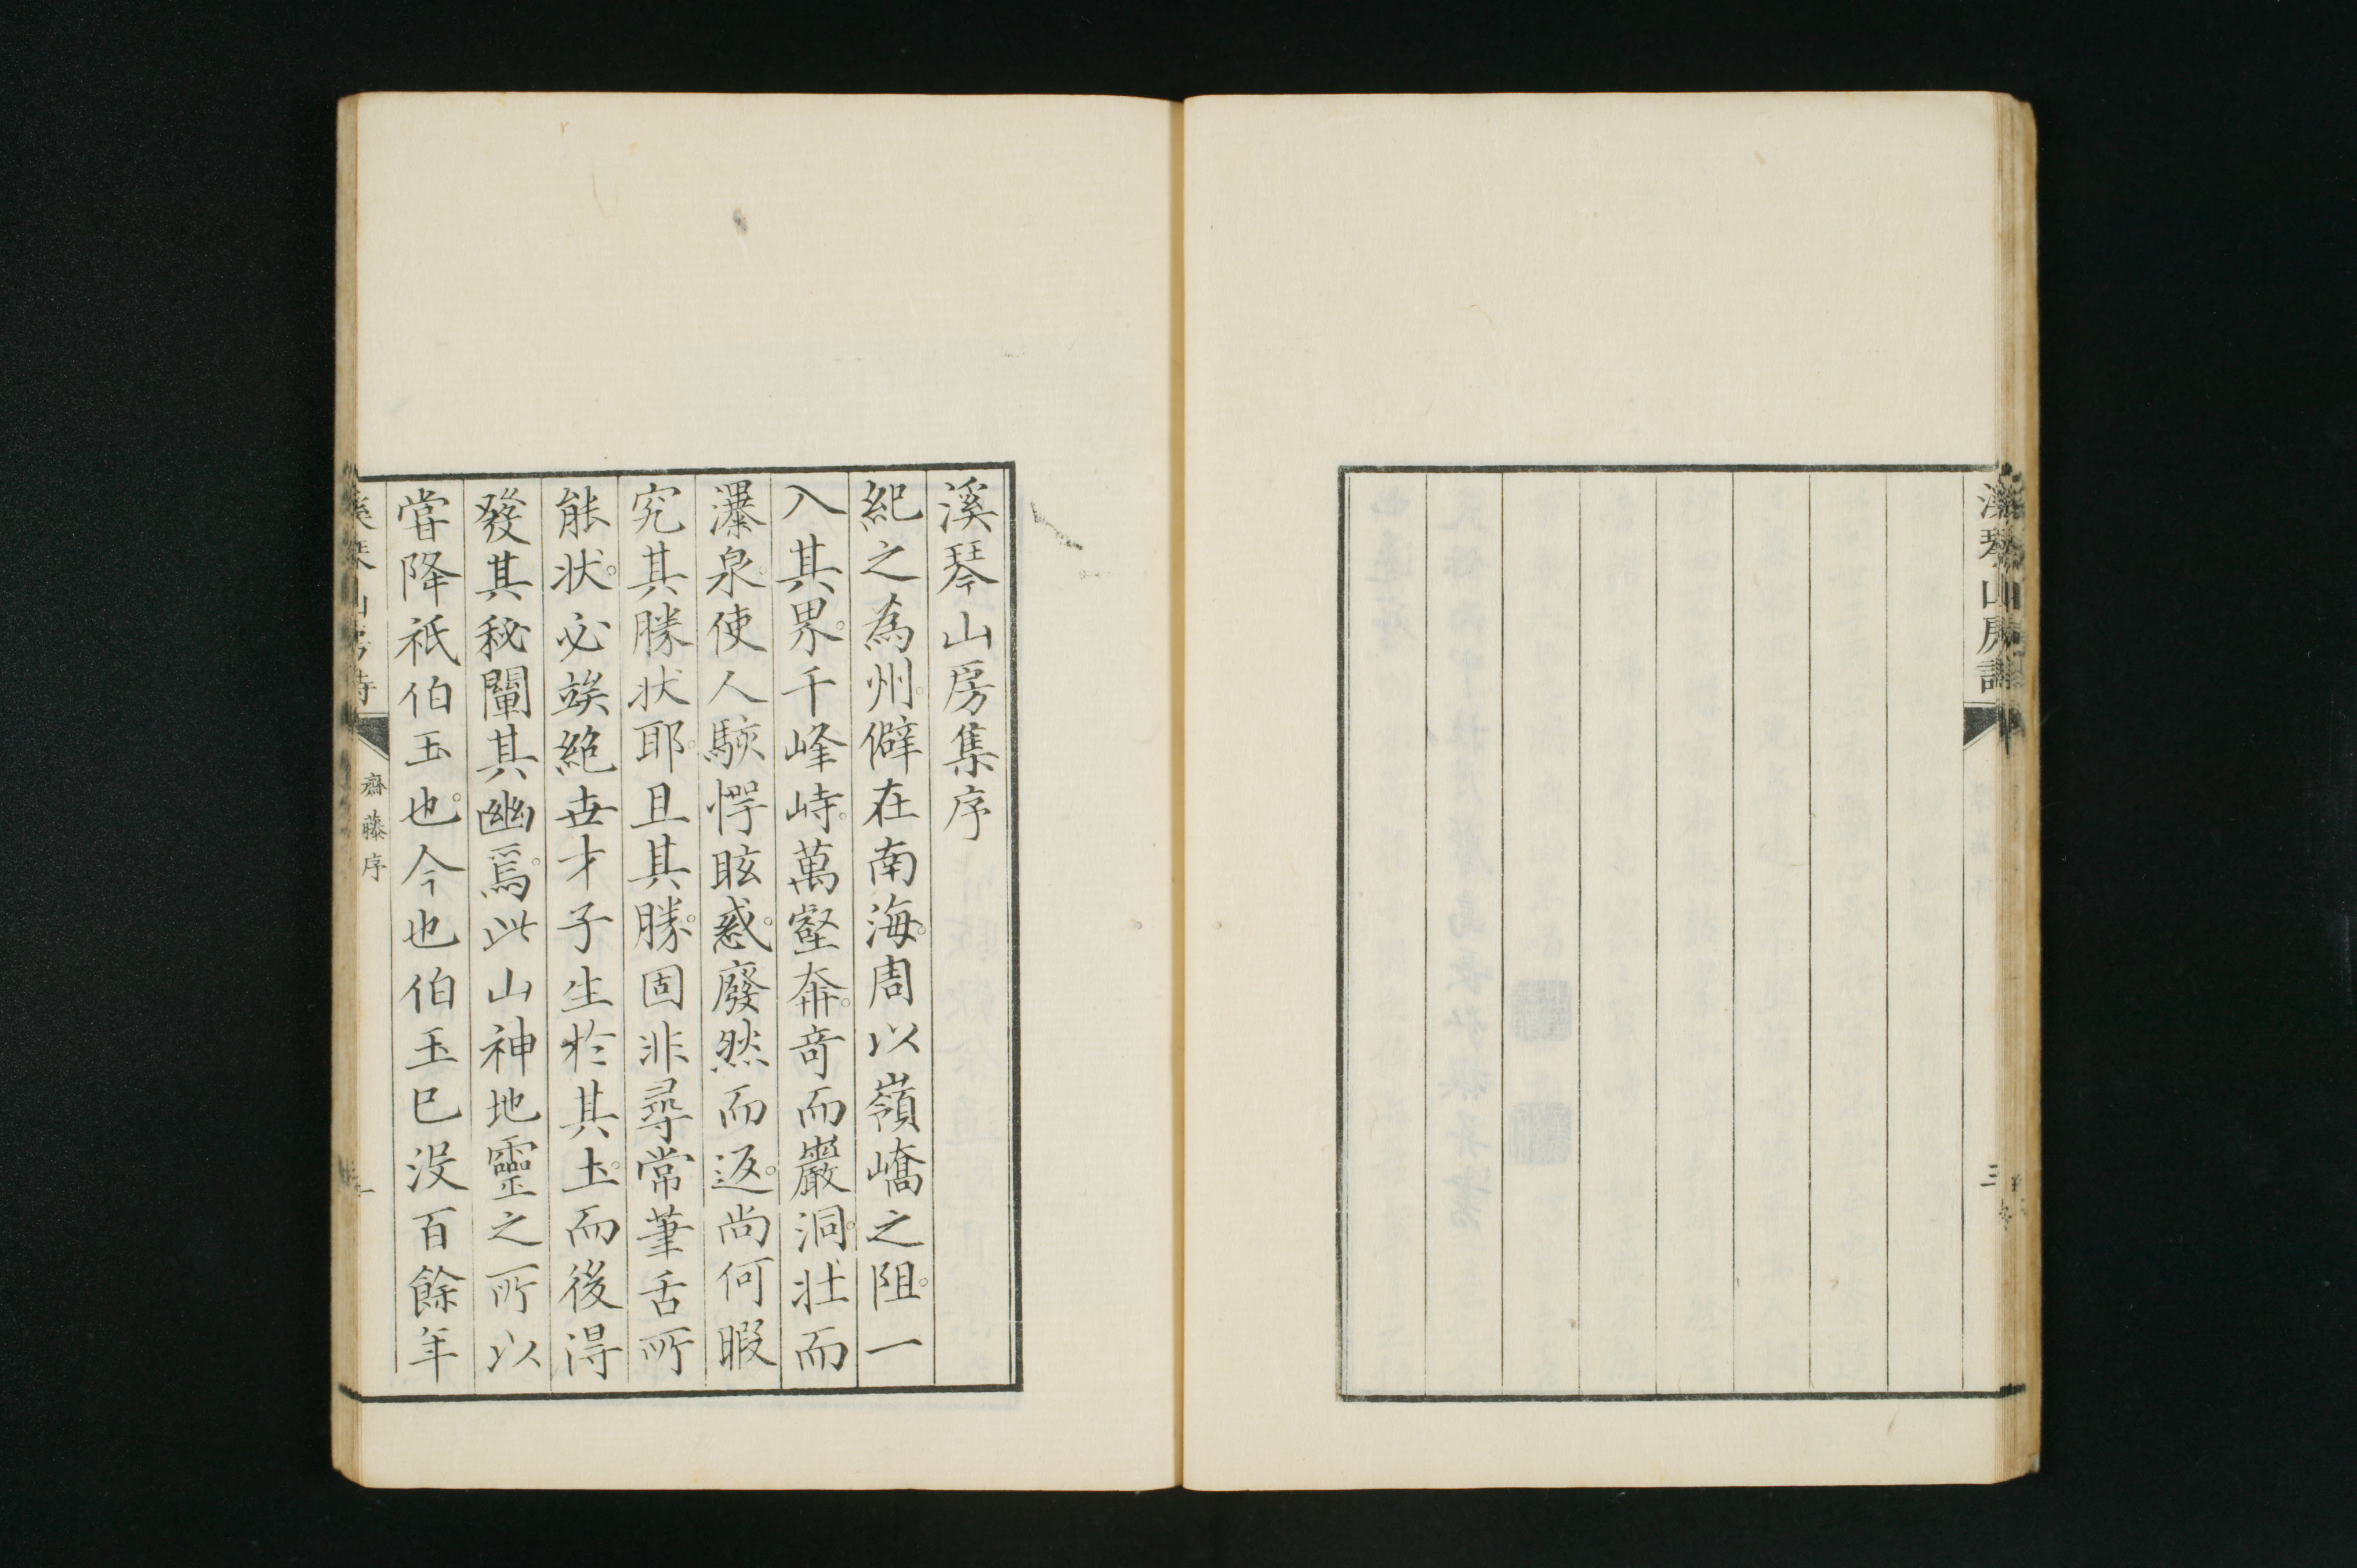 溪琴山房詩
三
溪琴山房集序
紀之為州。僻在南海。周以嶺嶠之阻。一
入其界。千峰峙。萬壑奔。奇而巖洞。壯而
瀑泉。使人駭愕眩惑。廢然而返。尚何暇
究其勝狀耶。且其勝。固非尋常筆舌所
能狀。必竢絕世才子生於其土。而後得
發其秘闡其幽焉。此山神地靈之所以
嘗降祇伯玉也。今也伯玉已沒百餘年
齋藤序
一